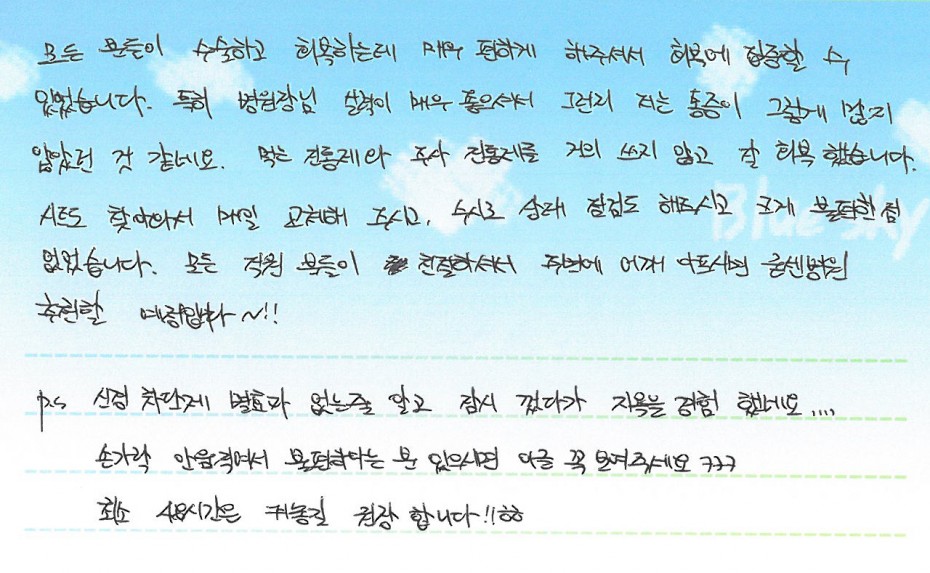 모든 분들이 수술하고 회복하는데 매우 편하게 해주셔서 회복에 집중할 수
있었습니다. 특히 병원장님 실력이 매우 좋으셔서 그런지 저는 통증이 그렇게 많지
않았던 것 같네요. 먹는 진통제와 주사 진통제를 거의 쓰지 않고 잘 회복했습니다.
찾아와서 매일 교체해 주시고, 수시로 상태 점검도 해주시고 크게 불편한 점
없었습니다. 모든 직원 분들이 친절하셔서 주변에 어깨 아프시면 굳센병원
추천할 예정입니다~!!
Blue sky
p.s 신경 차단제 별효과 없는줄 알고 잠시 껐다가 지옥을 경험 했네요....
손가락 안움직여서 불편하다는 분 있으시면 이글 꼭 보여주세요 ㅋㅋㅋ
최소 48시간은 켜놓길 권장 합니다!!ㅎㅎ